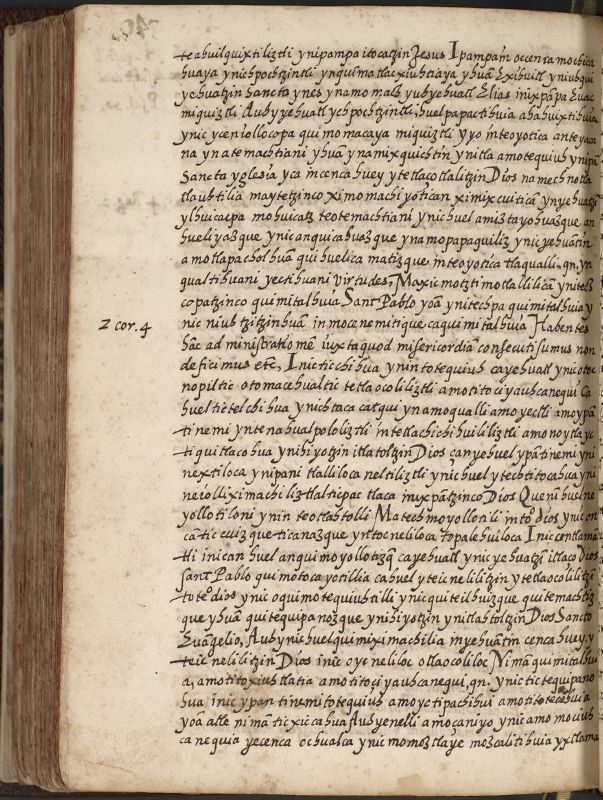 teahuilquixtiliztli ynipampa itocatzin Jesus Ipampam occenca mochica
huaya ynichpochtzintli ynquimatlacxiuhtiaya yhuã Exihuitl yniuhqui
yehuatzin Sancto ynes ynamo maço yuhyehuatl Elias inixpãpa Euac
miquiztli Auh yyehuatl ychpochtzintli, huel papactihuia ahahuixtihuia
ynic yceniollocopa quimomacaya miquiztli yyo inteoyotica anteyaca
na yn atemachtiani yhuã yn amixquichtin ynitla amotequiuh ynipã
Sancta yglesia yca incenca huey ytetlaçotlalitzin Dios namechnotla
tlauhtilia maytetzinco ximomachiyotican ximixcuiticã ynyehuatzĩ
ylhuicacpa mohuicatz teotemachtiani ynic huel amiztayohuazque an
hueliyazque ynic anquicahuazque ynamo papaquiliz ynic yehuãtin
amotlapacholhuã quihuelicamatizque inteoyotica tlaqualli .qn. yn
qualtihuani yectihuani virtudes, Maxicmotztimotlalilicã ynitetz
copatzinco quimitalhuia Sant Pablo yoã ynitechpa quimitalhuia y
nic niuhtzitzinhuã in mocenemitique ca quimitalhuia Habentes
2 cor. 4
hãc administratiõnẽ iuxta quod misericordiam consecuti sumus non
deficimus etc., Inic ticchihua ynin totequiuh ca yehuatl ynic otoc
nopiltic otomacehualtic tetlaocoliliztli amo titociyauhcanequi ca
huel tictelchihua ynichtaca catqui ynamo qualli amo yectli amo ypã
tinemi yntenahualpololiztli intetlachichihuililiztli amo no ytlayc
tiquitlacohua ynihiyotzin itlatoltzin Dios can ye huel ypã tinemi yni
nextiloca ynipantlalliloca neltiliztli ynic huel ytech titocahua yni
neiolliximachiliztlalticpac tlaca inixpãtzinco Dios Quenĩ huel ne
yollotiloni ynin teotlahtolli Ma techmoyollotili in tõ dios ynic on
cã ticcuizque ticanazque yn tocneliloca topalehuiloca Inic centlamã
tli inic an huel anquimoyollotizq̃ ca yehuatl ynic yehuatzĩ itlaço Dios
Sant Pablo quimotoca yotillia cahuel yteicnelilitzin ytetlaocolilitzĩ
to teo dios ynic oquimotequiuhtilli ynic quiteilhuizque quitemachtiz
que yhuã quitequipanozque ynihiyotzin ynitlahtoltzin Dios Sancto
Euãgelio, Auh ynic huel quimiximachilia inyehuãtin cenca huey y
teicnelilitzin Dios inic oycneliloc otlaocoliloc Nimã quimitalhui
a, amo titoxiuhtlatia amo titociyauhcanequi, qn. ynic tictequipano
hua inic ypan tinemi totequiuh amo yc tipachihui amo titotecehuia
yoã atle nimã ticxicahua Auh yenelli amo caniyo ynic amo mociuh
canequia yecenca ochualca ynic momoztlaye mozcalitihuia yxtlama